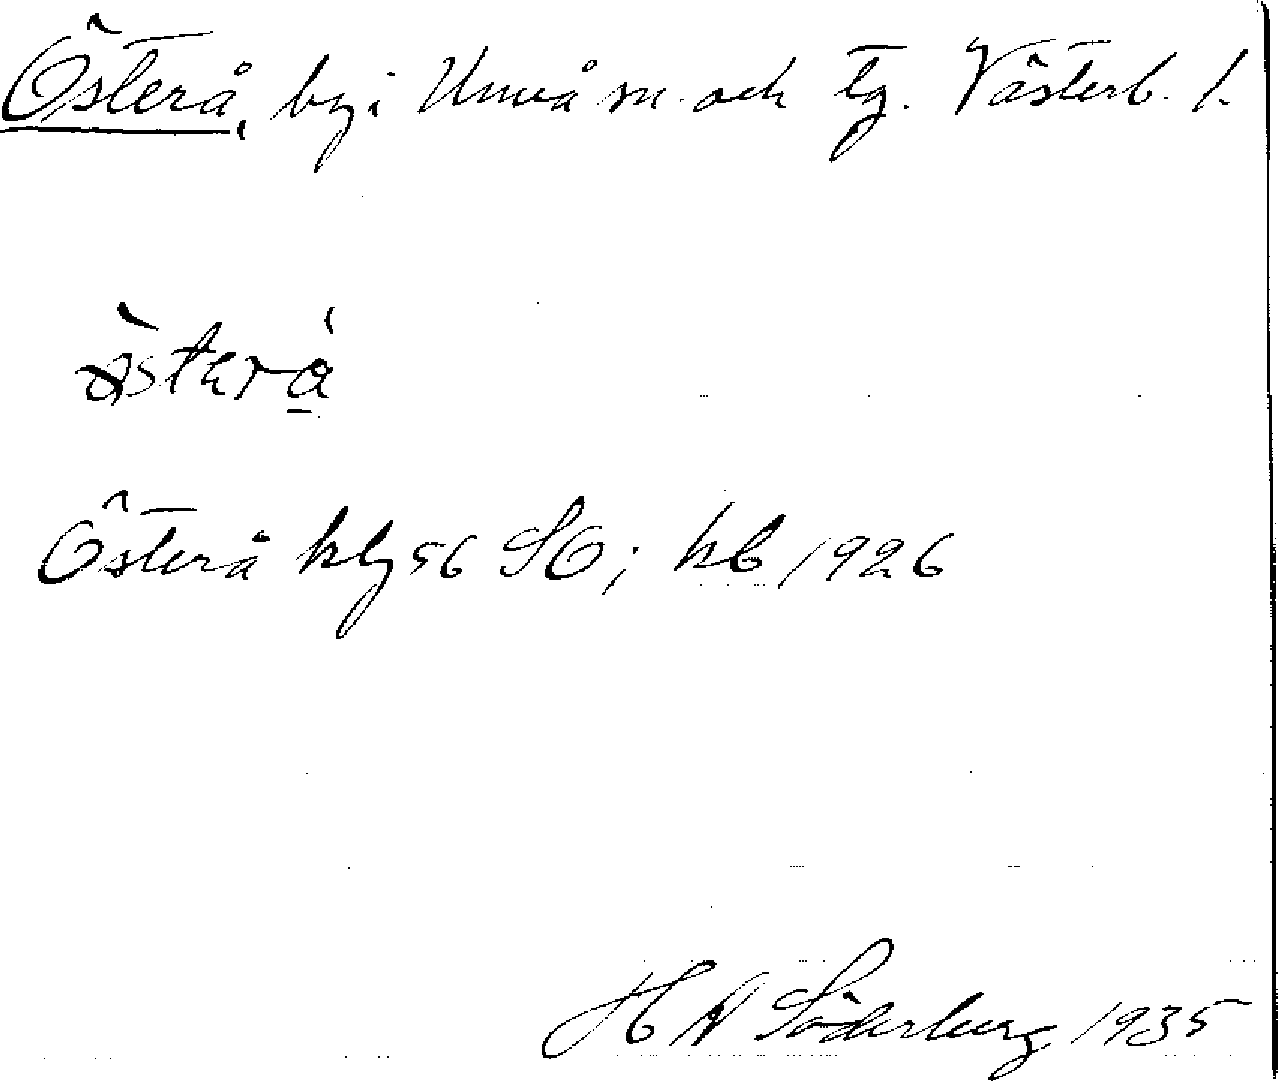 Österå, by i Umeå sn. och tg. Västerb. l.
Österå kbg 56 SO; kb 1926
H N Söderberg 1935